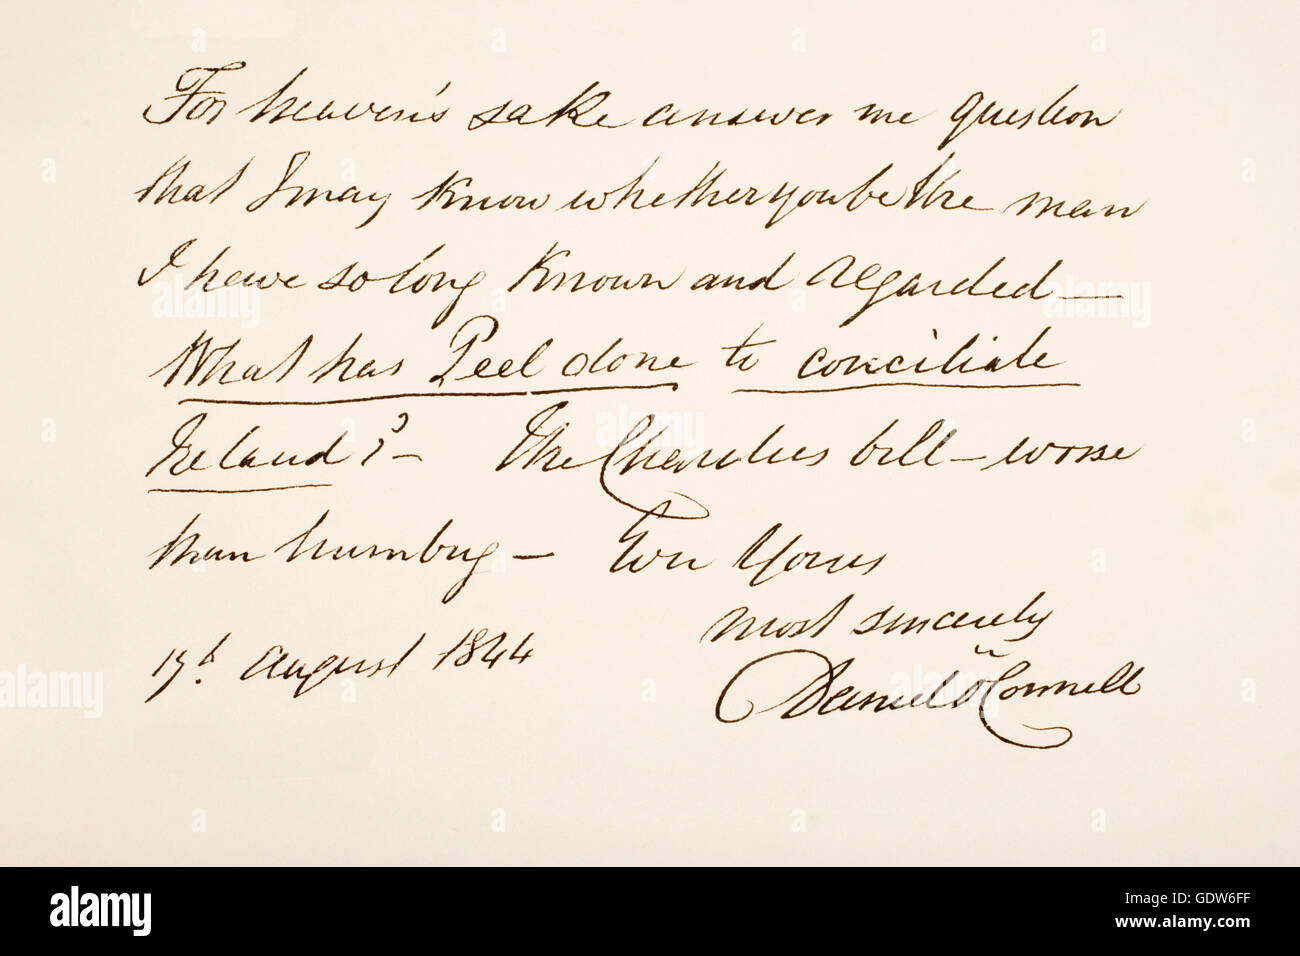 For heaven's sake answer me question
that I may know whether you be the man
I have so long known and regarded—
What has Peel done to conciliate
Ireland?— The Charities bill—worse
than humbug—
Yours
most sincerely
17th August 1844
Daniel O'Connell
a
alamy
alamy stock photo
GDW6FF
www.alamy.com